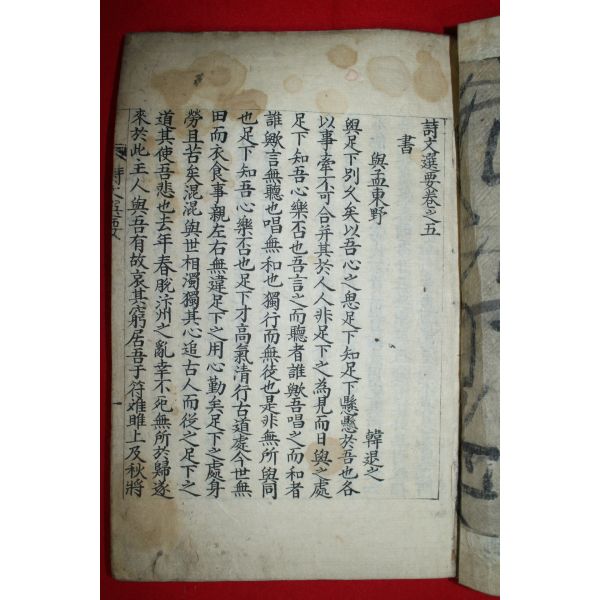 詩文選要卷之五
書
與孟東野 韓退之
與足下別久矣以吾心之思足下知足下懸懸於吾也各
以事牽不可合并其於人人非足下之為見而日與之處
足下知吾心樂否也吾言之而聽者誰歟吾唱之而和者
誰歟言無聽也唱無和也獨行而無徒也是非無所與同
也足下知吾心樂否也足下才高氣清行古道處今世無
田而衣食事親左右無違足下之用心勤矣足下之處身
勞且苦矣混混與世相濁獨其心追古人而從之足下之
道其使吾悲也去年春脫汴州之亂幸不死無所於歸遂
來於此主人與吾有故哀其窮居吾于符離睢上及秋將